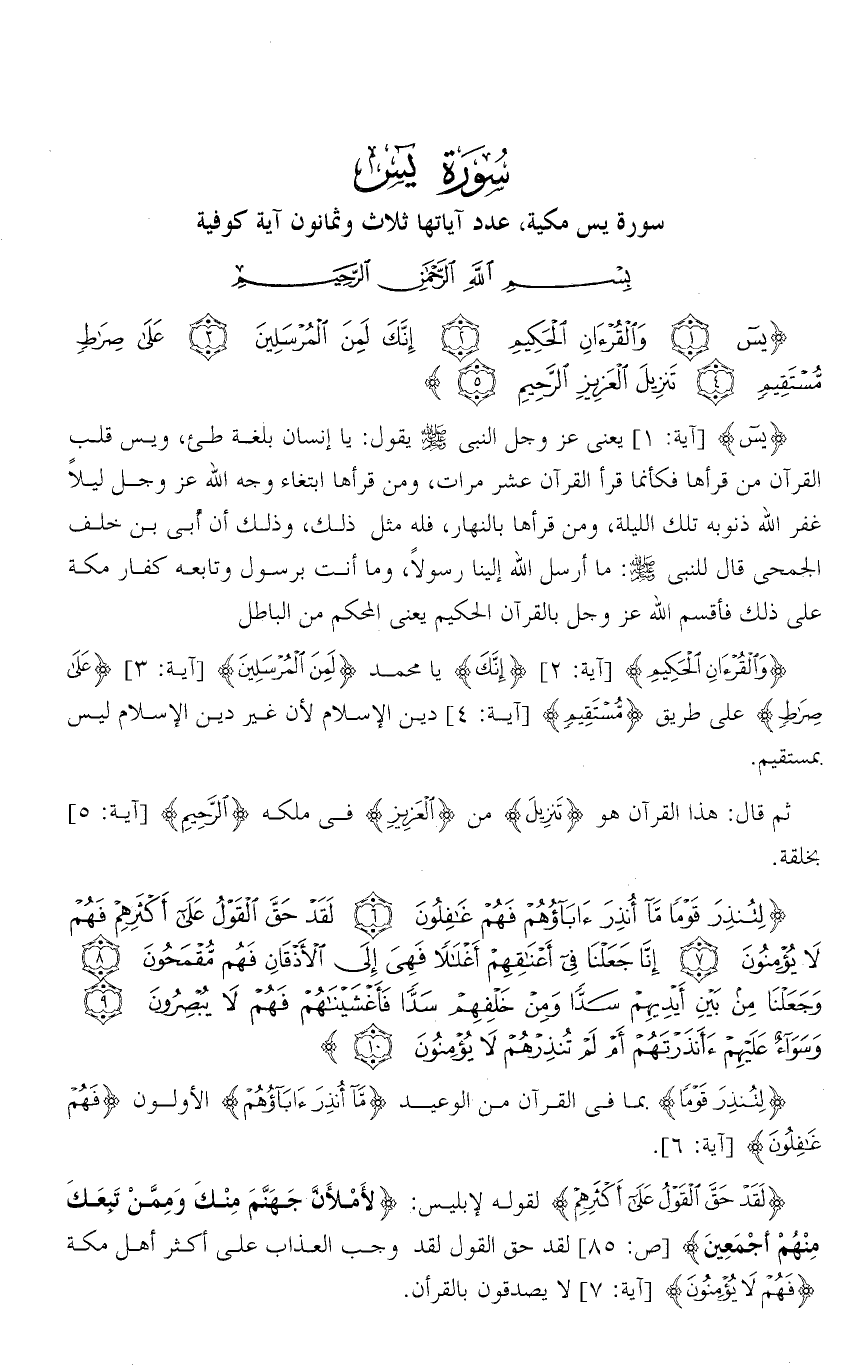 سُورَةُ يسٓ
سورة يس مكية، عدد آياتها ثلاث وثمانون آية كوفية
بِسْمِ ٱللَّهِ ٱلرَّحْمَٰنِ ٱلرَّحِيمِ
﴿يسٓ ١ وَٱلْقُرْءَانِ ٱلْحَكِيمِ ٢ إِنَّكَ لَمِنَ ٱلْمُرْسَلِينَ ٣ عَلَىٰ صِرَٰطٍ
مُّسْتَقِيمٍ ٤ تَنزِيلَ ٱلْعَزِيزِ ٱلرَّحِيمِ ٥ ﴾
﴿يسٓ﴾ [آية: ١] يعنى عز وجل النبى ﷺ يقول: يا إنسان بلغة طئ، ويس قلب
القرآن من قرأها فكأنما قرأ القرآن عشر مرات، ومن قرأها ابتغاء وجه الله عز وجل ليلاً
غفر الله ذنوبه تلك الليلة، ومن قرأها بالنهار، فله مثل ذلك، وذلك أن أبى بن خلف
الجمحى قال للنبى ﷺ: ما أرسل الله إلينا رسولاً، وما أنت برسول وتابعه كفار مكة
على ذلك فأقسم الله عز وجل بالقرآن الحكيم يعنى المحكم من الباطل
﴿وَٱلْقُرْءَانِ ٱلْحَكِيمِ﴾ [آية: ٢] ﴿إِنَّكَ﴾ يا محمد ﴿لَمِنَ ٱلْمُرْسَلِينَ﴾ [آية: ٣] ﴿عَلَىٰ
صِرَٰطٍ﴾ على طريق ﴿مُّسْتَقِيمٍ﴾ [آية: ٤] دين الإسلام لأن غير دين الإسلام ليس
بمستقيم.
ثم قال: هذا القرآن هو ﴿تَنزِيلَ﴾ من ﴿ٱلْعَزِيزِ﴾ فى ملكه ﴿ٱلرَّحِيمِ﴾ [آية: ٥]
بخلقة.
﴿لِتُنذِرَ قَوْمًا مَّآ أُنذِرَ ءَابَآؤُهُمْ فَهُمْ غَٰفِلُونَ ٦ لَقَدْ حَقَّ ٱلْقَوْلُ عَلَىٰٓ أَكْثَرِهِمْ فَهُمْ
لَا يُؤْمِنُونَ ٧ إِنَّا جَعَلْنَا فِىٓ أَعْنَٰقِهِمْ أَغْلَٰلًا فَهِىَ إِلَى ٱلْأَذْقَانِ فَهُم مُّقْمَحُونَ ٨
وَجَعَلْنَا مِنۢ بَيْنِ أَيْدِيهِمْ سَدًّا وَمِنْ خَلْفِهِمْ سَدًّا فَأَغْشَيْنَٰهُمْ فَهُمْ لَا يُبْصِرُونَ ٩
وَسَوَآءٌ عَلَيْهِمْ ءَأَنذَرْتَهُمْ أَمْ لَمْ تُنذِرْهُمْ لَا يُؤْمِنُونَ ١٠ ﴾
﴿لِتُنذِرَ قَوْمًا﴾ بما فى القرآن من الوعيد ﴿مَّآ أُنذِرَ ءَابَآؤُهُمْ﴾ الأولون ﴿فَهُمْ
غَٰفِلُونَ﴾ [آية: ٦].
﴿لَقَدْ حَقَّ ٱلْقَوْلُ عَلَىٰٓ أَكْثَرِهِمْ﴾ لقوله لإبليس: ﴿لأَمْلأَنَّ جَهَنَّمَ مِنْكَ وَمِمَّنْ تَبِعَكَ
مِنْهُمْ أَجْمَعِينَ﴾ [ص: ٨٥] لقد حق القول لقد وجب العذاب على أكثر أهل مكة
﴿فَهُمْ لَا يُؤْمِنُونَ﴾ [آية: ٧] لا يصدقون بالقرأن.